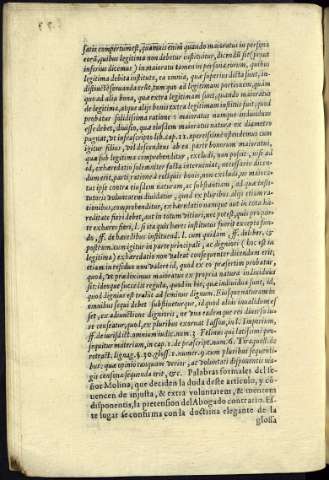 satis compertum est, quamuis enim quando maioratus in persona
extra, quibus legitima non debetur instituitur, dicendũ sit (prout
inferius dicemus) in maioratu tamen in personarum, quibus
legitima debita instituto, ea omnia, quæ superius dicta sunt,
seruanda erũt, tum quo ad legitimam portionem, quàm
quo ad alia bona, quæ extra legitimam sunt, quando maioratus
de legitima, atque alijs bonis extra legitimam institutus sit, quod
probatur solidissima ratione: maioratus namque indiuiduus
esse debet, diuisio, quæ eiusdem maioratus naturæ ex diametro
pugnat, vt in cap. apertissimè ostendemus cum
igitur filius, vel descendens ab ea parte bonorum maioratus,
quæ sub legitima comprehenditur, excludi, non possit, ipso
id, exhæredatio solummodo facta intercedat, necessario dicen-
dum erit, pari ratione à reliquis bonis, non excludi, ne maiora-
tus ipse contra eiusdem naturam, ac substantiam, ad quæ insti-
tutoris voluntatem diuidatur, quod ex pluribus alijs etiam ra-
tionibus, comprehenditur, exhæredatio namque aut in tota hæ-
reditate fieri debet, aut in totum vitietur, nec potest, quis pro par-
te exhæres fieri, l. si ita quis hæres institutus fuerit excepto fun-
do, ff. de hæredibus instituend. l. cum quidam, ff. de liber. &
postum. cum igitur in parte principali, ac digniori (hoc est in
legitima) exhæredatio non valeat consequenter dicendum erit,
etiam in residuo non valere id, quod ex eo præsertim probatur,
quod, vt prædiximus maioratus ex propria natura indiuiduus
sit: idemque societatis regula, quod in his, quæ indiuidua sunt, id,
quod dignius est trahit ad se minus dignum. Eiusque naturam in
omnibus sequi debet substituiturque, id, quod aliàs inualidum es-
set, ex adiunctione dignioris, & vna eadem que rei diuersio iu-
re censeatur, quod, ex pluribus exornat Iasson, in l. Imperium.
ff. de iurisdict. omnium iudic. num. 3. Felinus qui latissimè pro-
sequitur materiam, in cap. 1. de præscript. num. 6. Tiraquell. de
retract. lignag. §. 30. gloss. 1. numer. 9. cum pluribus sequenti-
bus: quæ opinio nusquam veriùr, ac voluntati disponentis ma-
gis consona sequenda erit, &c. Palabras formales del se-
ñor Molina, que deciden la duda deste articulo, y cō-
uencen de injusta, & extra voluntatem, & mentem
disponentis, la pretension del Abogado contrario. Es-
te lugar se confirma con la doctrina elegante de la
glossa